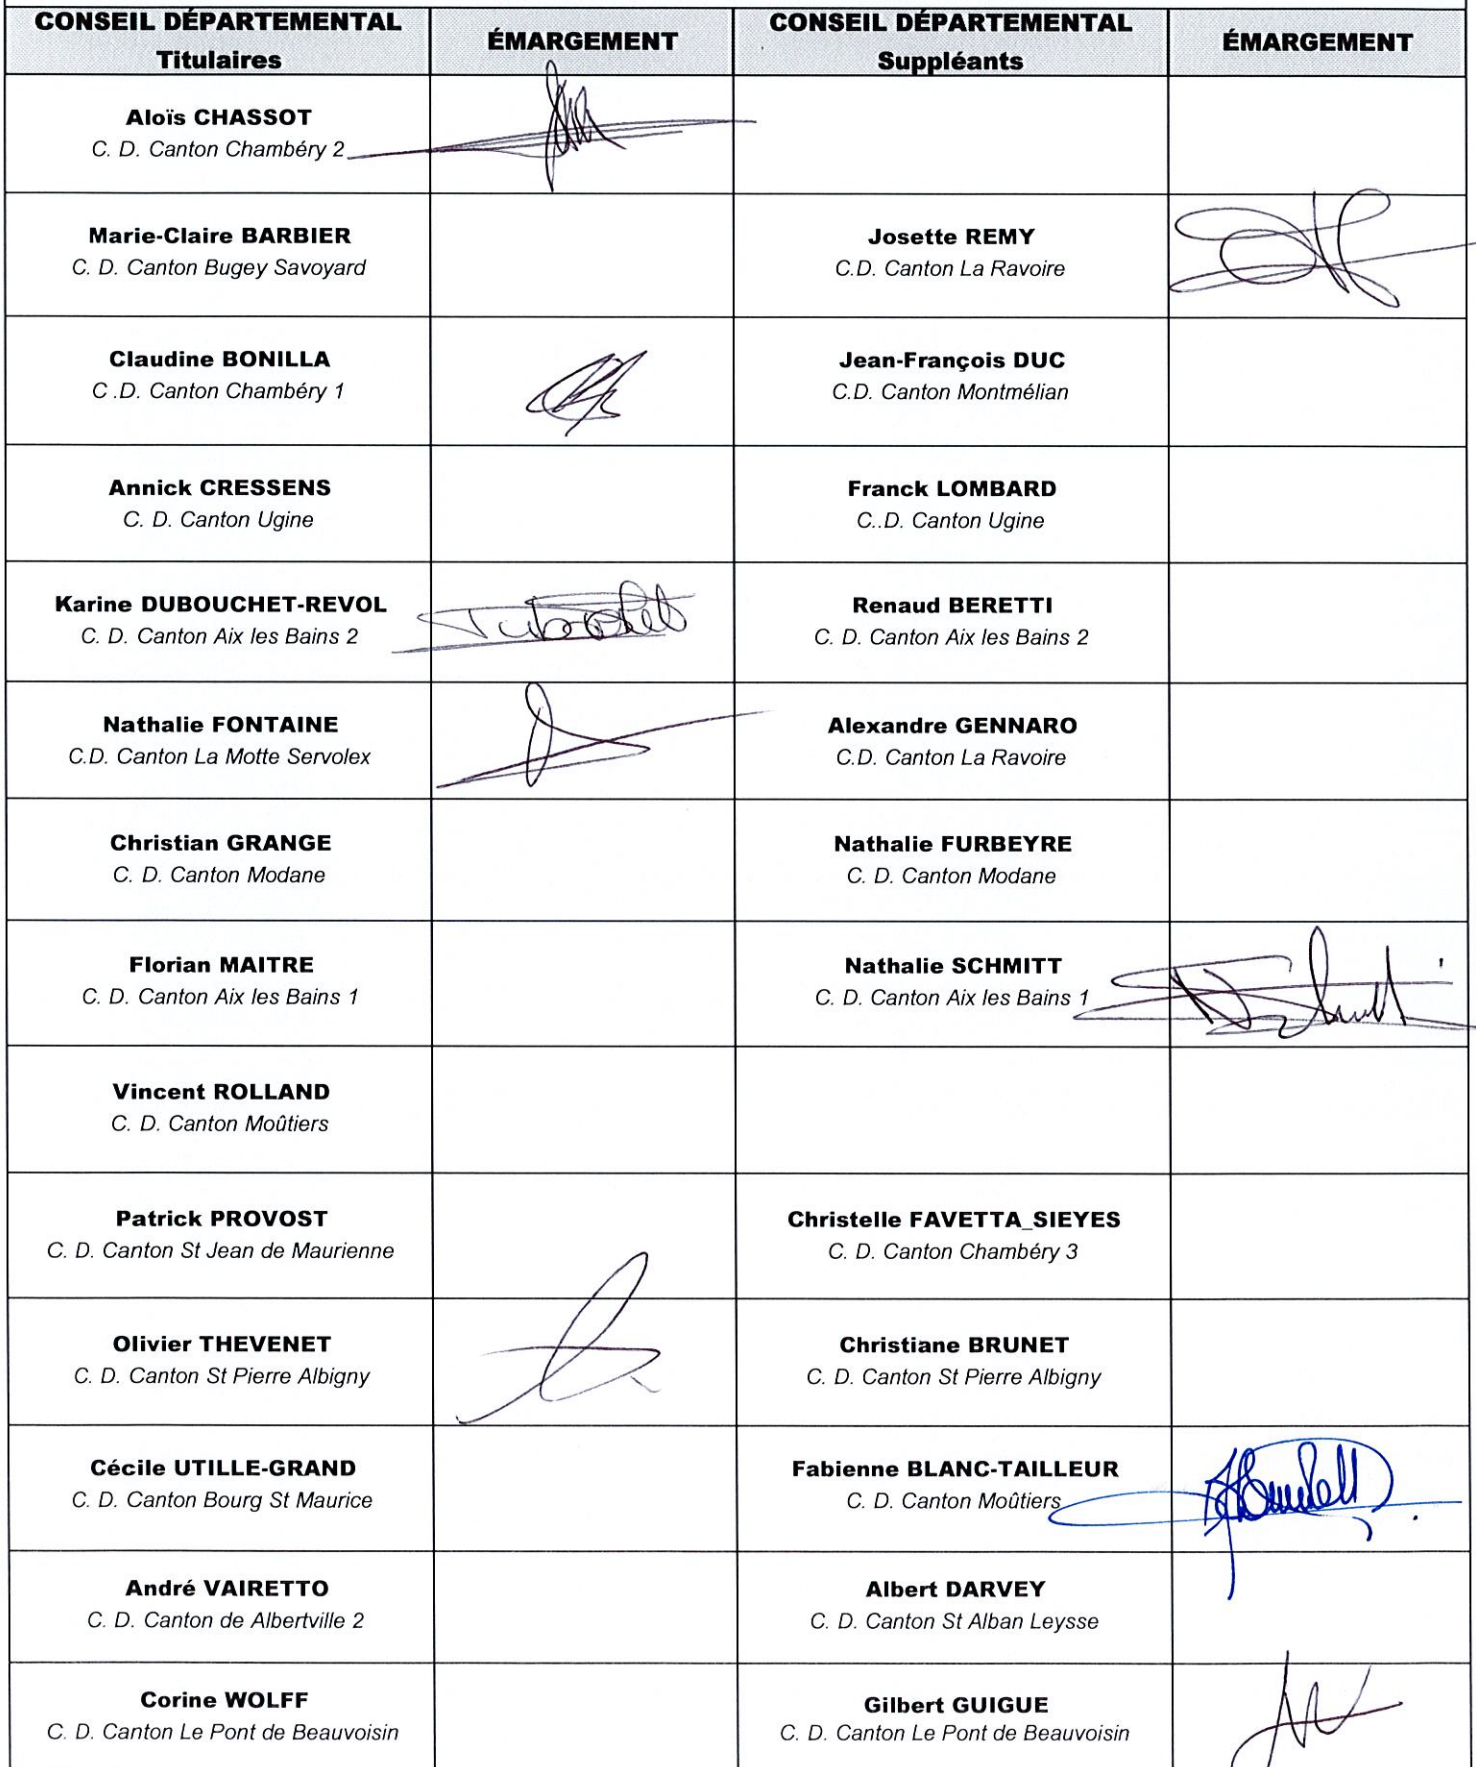 CONSEIL DÉPARTEMENTAL
Titulaires
ÉMARGEMENT
CONSEIL DÉPARTEMENTAL
Suppléants
ÉMARGEMENT
Aloïs CHASSOT
C. D. Canton Chambéry 2
Marie-Claire BARBIER
C. D. Canton Bugey Savoyard
Josette REMY
C.D. Canton La Ravoire
Claudine BONILLA
C .D. Canton Chambéry 1
Jean-François DUC
C.D. Canton Montmélian
Annick CRESSENS
C. D. Canton Ugine
Franck LOMBARD
C..D. Canton Ugine
Karine DUBOUCHET-REVOL
C. D. Canton Aix les Bains 2
Renaud BERETTI
C. D. Canton Aix les Bains 2
Nathalie FONTAINE
C.D. Canton La Motte Servolex
Alexandre GENNARO
C.D. Canton La Ravoire
Christian GRANGE
C. D. Canton Modane
Nathalie FURBEYRE
C. D. Canton Modane
Florian MAITRE
C. D. Canton Aix les Bains 1
Nathalie SCHMITT
C. D. Canton Aix les Bains 1
Vincent ROLLAND
C. D. Canton Moûtiers
Patrick PROVOST
C. D. Canton St Jean de Maurienne
Christelle FAVETTA_SIEYES
C. D. Canton Chambéry 3
Olivier THEVENET
C. D. Canton St Pierre Albigny
Christiane BRUNET
C. D. Canton St Pierre Albigny
Cécile UTILLE-GRAND
C. D. Canton Bourg St Maurice
Fabienne BLANC-TAILLEUR
C. D. Canton Moûtiers
André VAIRETTO
C. D. Canton de Albertville 2
Albert DARVEY
C. D. Canton St Alban Leysse
Corine WOLFF
C. D. Canton Le Pont de Beauvoisin
Gilbert GUIGUE
C. D. Canton Le Pont de Beauvoisin